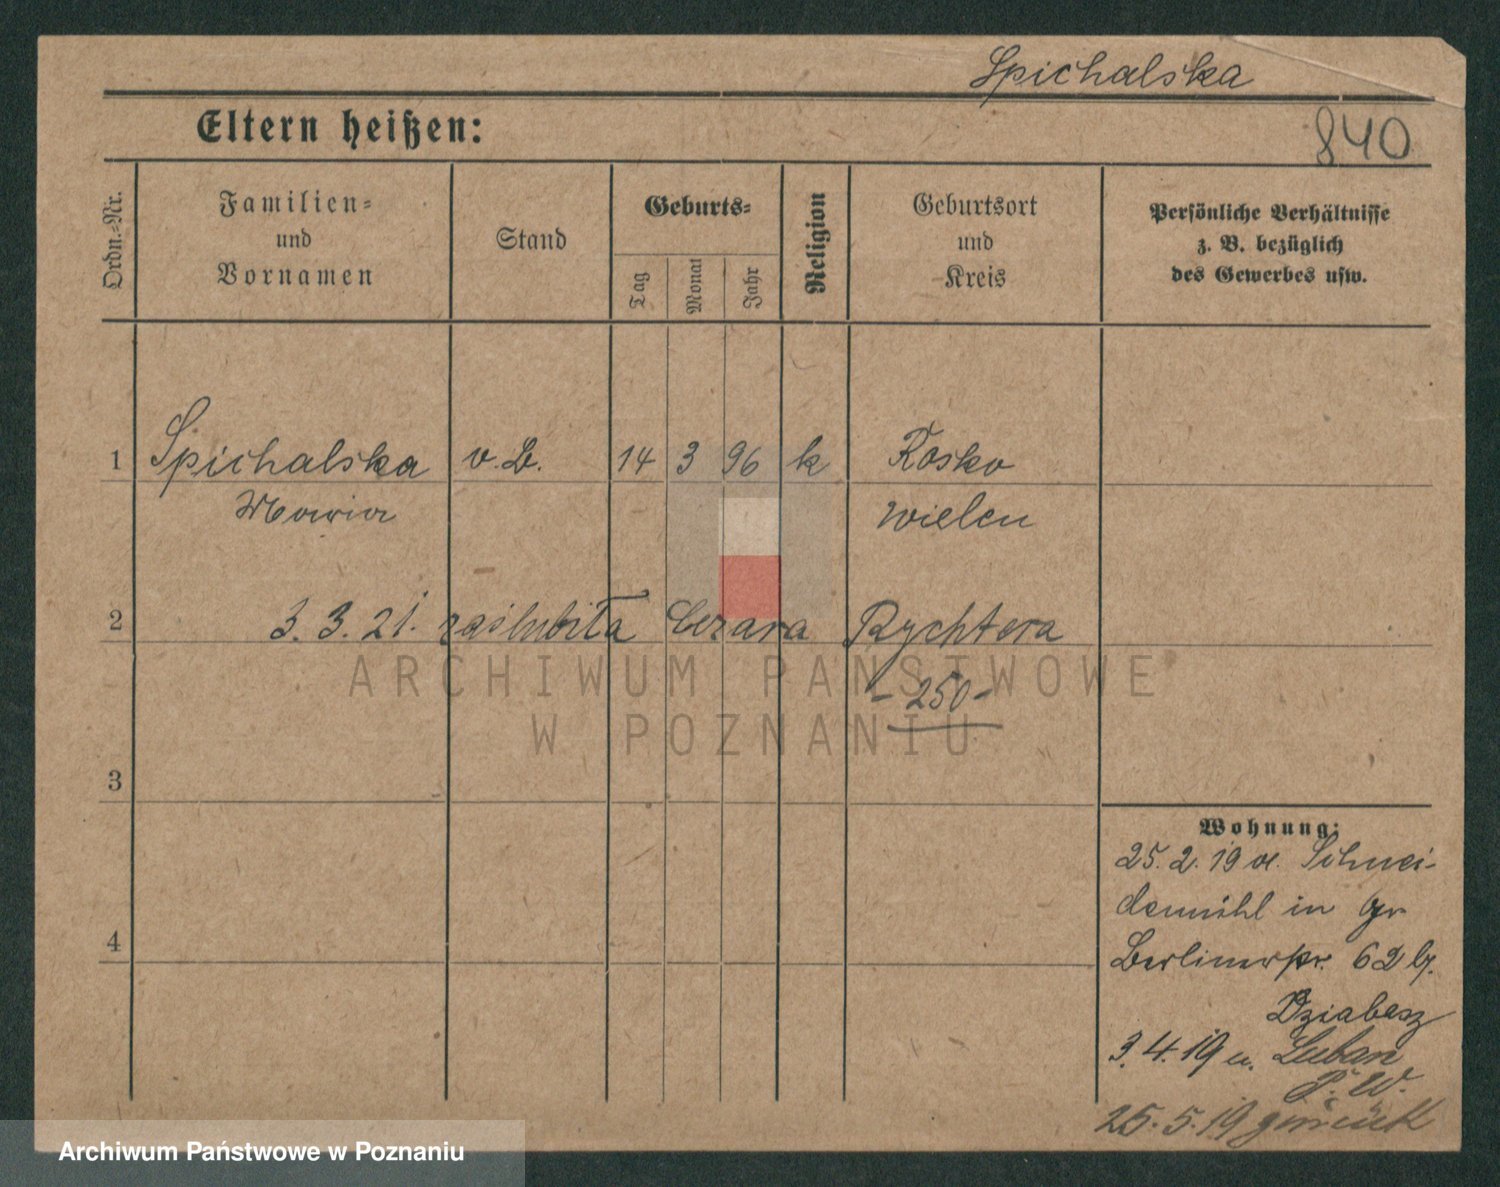 Spichalska
Eltern heißen:
840
Ordn.=Nr.
Familien=
und
Vornamen
Stand
Geburts=
Tag
Monat
Jahr
Religion
Geburtsort
und
Kreis
Persönliche Verhältnisse
z. B. bezüglich
des Gewerbes usw.
1 Spichalska v. B. 14 3 96 k Rosko
Maria Wielen
2 3. 3. 21. zaślubiła Cezara Rychtera
- 250 -
3
4
Wohnung:
25. 2. 19 v. Schnei-
demühl in
Berlinerstr. 62 b.
Dziabasz
3. 4. 19 n. Luban
P. W.
25. 5. 19 zurück
ARCHIWUM PAŃSTWOWE
W POZNANIU
Archiwum Państwowe w Poznaniu